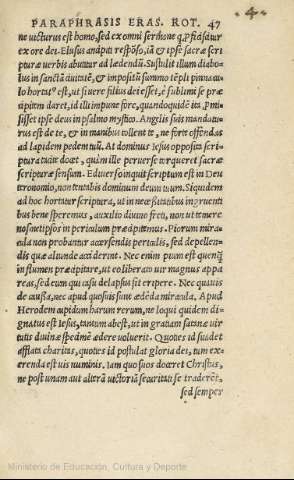 PARAPHRASIS ERAS. ROT. 47
ne victurus est homo, sed ex omni sermone q, pficiscitur
ex ore dei. Elusus ancipiti respōso, iā & ipse sacræ scri
pturæ verbis abutitur ad lædendū. Sustulit illum diabo
lus in sanctā ciuitatē, & impositū summo tēpli pinnacu
lo hortatᵒ est, ut si uere filius dei esset, è sublimi se præ
cipitem daret, id illi impune fore, quandoquidē ita, pmi
sisset ipse deus in psalmo mystico. Angelis suis mandatu
rus est de te, & in manibus tollent te, ne forte offendas
ad lapidem pedem tuū. At dominus Iesus opposita scri
ptura tacite docet, quàm ille peruerse torqueret sacræ
scripturæ sensum. E diuerso inquit scriptum est in Deu
tronomio, non tentabis dominum deum tuum. Siquidem
ad hoc hortatur scriptura, ut in necessitatibus ingruenti
bus bene speremus, auxilio diuino freti, non ut temere
nosmetipsos in periculum præcipitemus. Piorum mira
cula non probantur accersendis periculis, sed depellen
dis quæ aliunde acciderint. Nec enim pium est quenq̄
in flumen præcipitare, ut eo liberato uir magnus appa
reas, sed eum qui casu delapsus sit eripere. Nec quauis
de causa, nec apud quosuis sunt ædēda miracula. Apud
Herodem cupidum harum rerum, ne loqui quidem di-
gnatus est Iesus, tantum abest, ut in gratiam satanæ uir
tutis diuinæ specimē ædere voluerit. Quoties id suadet
afflicta charitas, quoties id postulat gloria dei, tum ex-
erenda est uis numinis. Iam quo suos doceret Christus,
ne post unam aut alterā victoriā securitati se traderēt,
sed semper
Ministerio de Educación, Cultura y Deporte